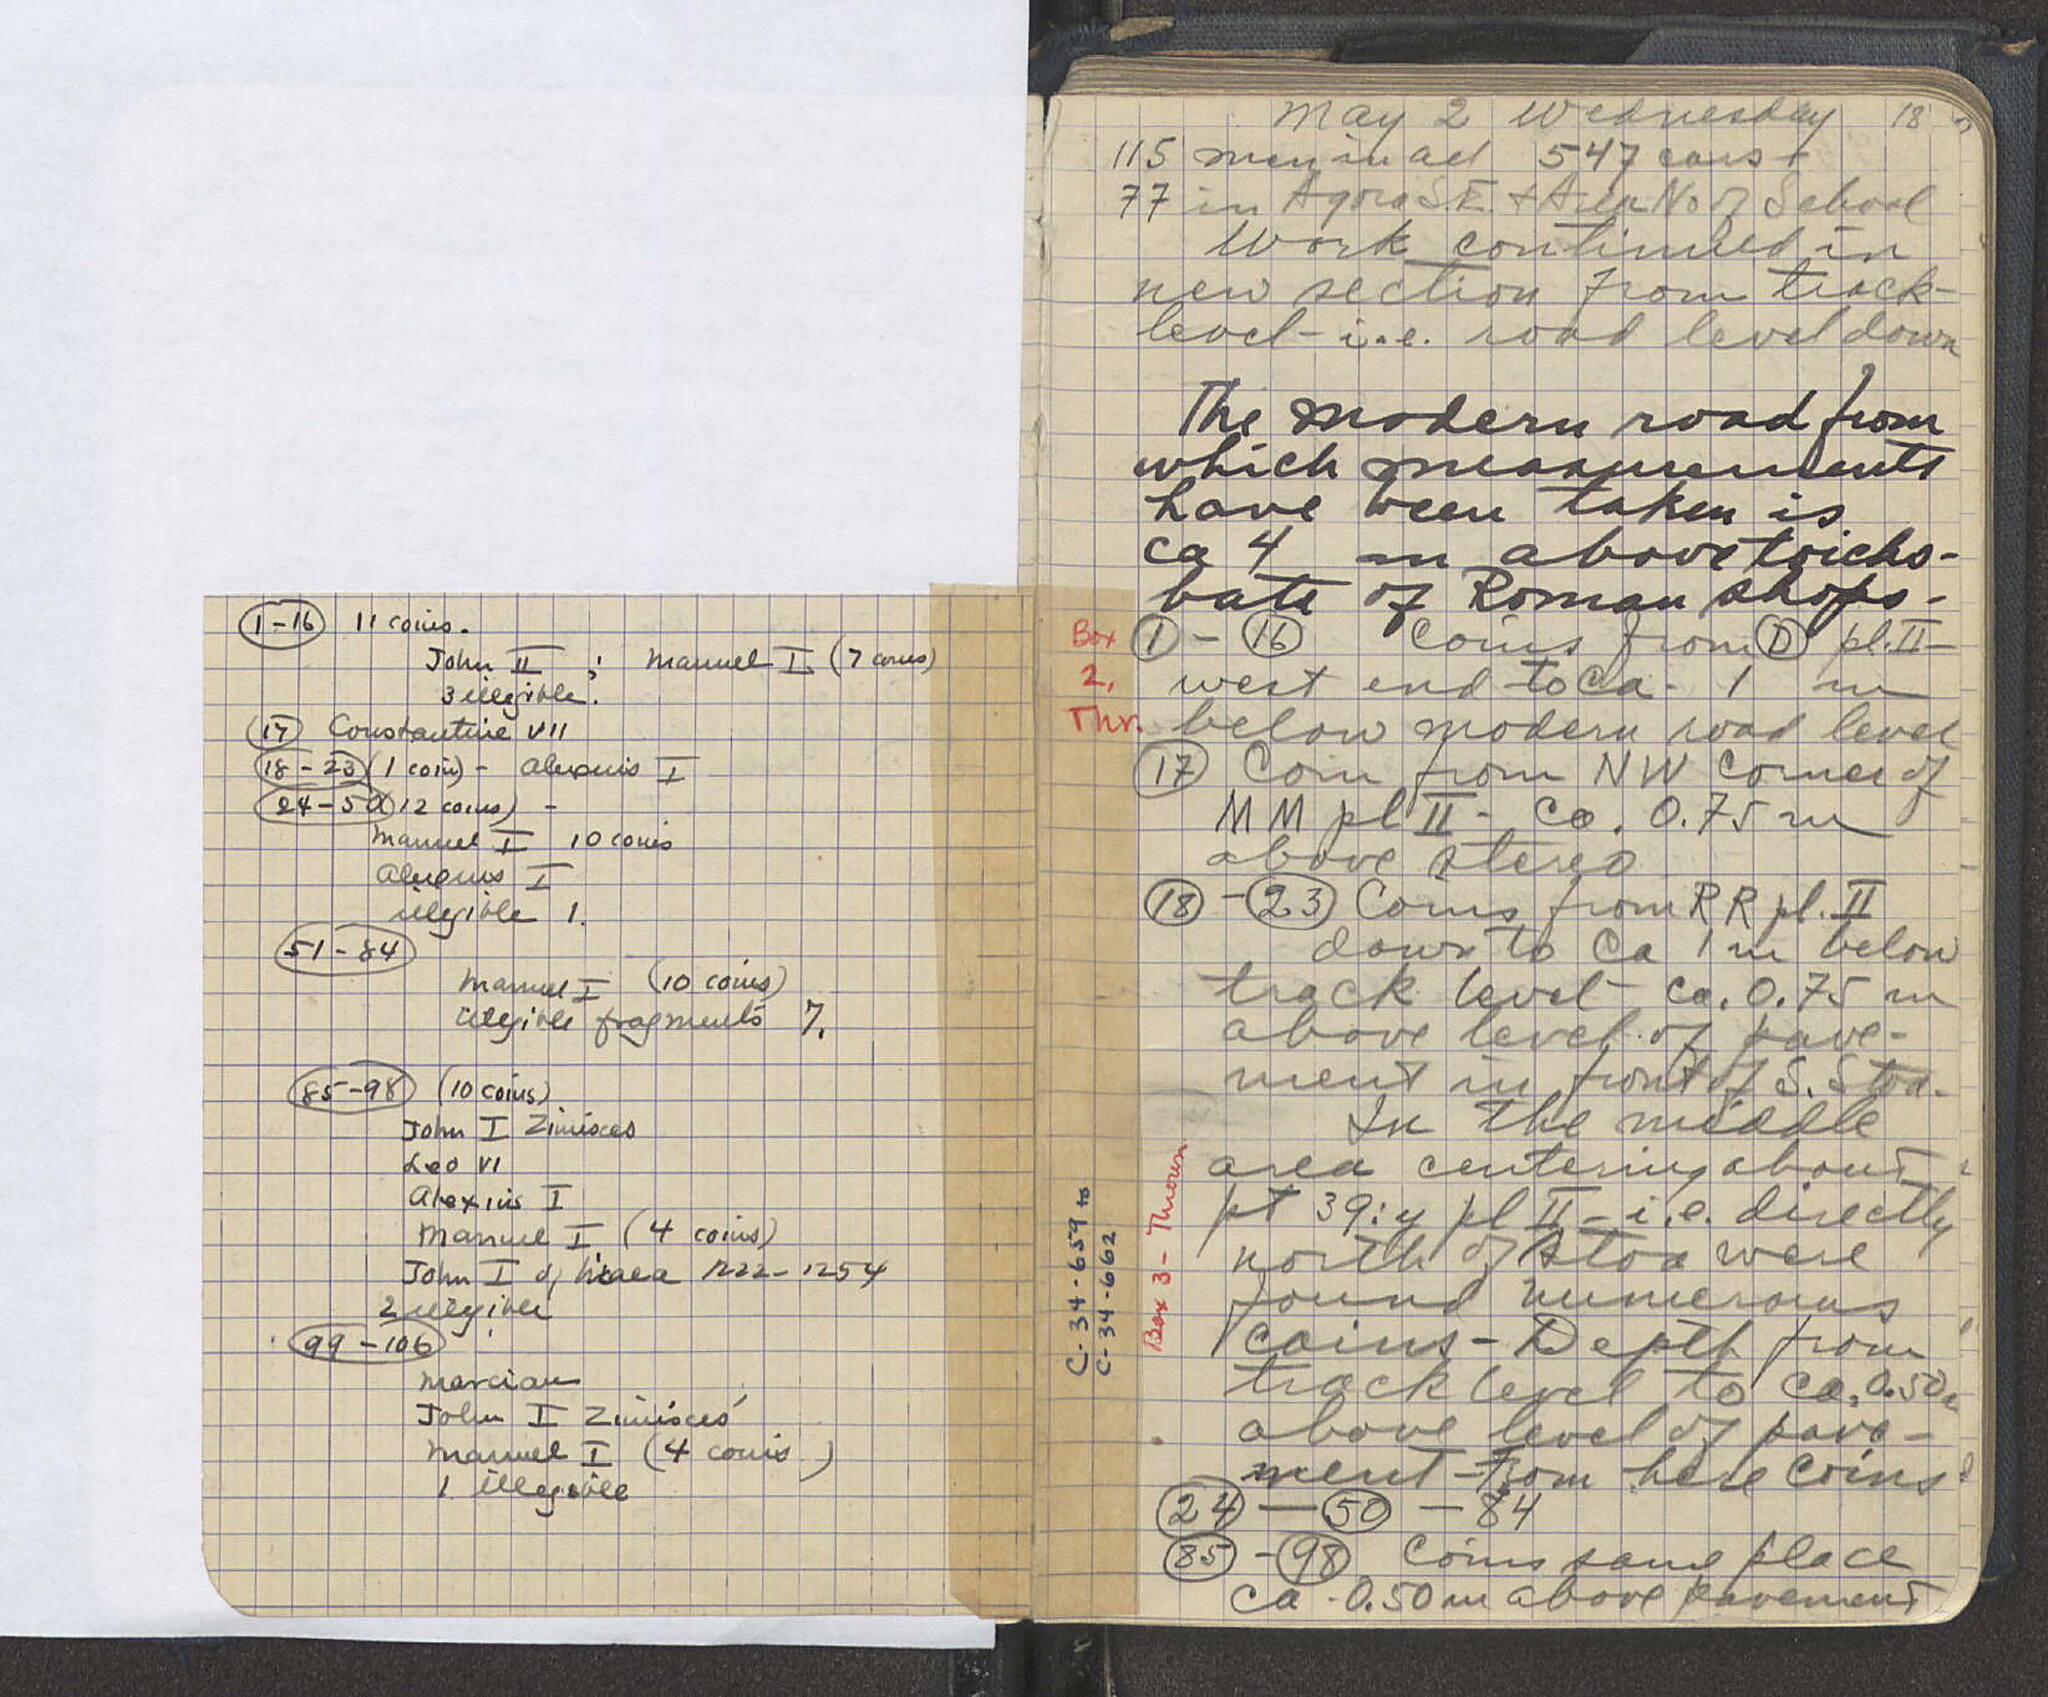 1-16 11 coins.
John II ; Manuel I (7 coins)
3 illegible.
17 Constantine VII
18-23 (1 coin) - Alexius I
24-50 (12 coins) -
Manuel I 10 coins
Alexius I
illegible 1.
51-84
Manuel I (10 coins)
illegible fragments 7.
85-98 (10 coins)
John I Zimisces
Leo VI
Alexius I
Manuel I (4 coins)
John I of Nicaea 1222-1254
2 illegible
99-106
Marcian
John I Zimisces
Manuel I (4 coins)
1 illegible
May 2 Wednesday 18
115 men in all 547 cars -
77 in Agora S.E. + Area No of School
Work continued in
new section from track-
level - i.e. road level down
The modern road from
which measurements
have been taken is
ca 4 m above toicho-
bate of Roman shops -
Box
2,
Thr.
1 - 16 Coins from D pl. II -
west end to ca. 1 m
below modern road level
17 Coin from NW corner of
MM pl II - Ca. 0.75 m
above stereo
18 - 23 Coins from RR pl. II
down to ca 1 m below
track level - ca. 0.75 m
above level of pave-
ment in front of S. Stoa.
In the middle
area centering about
pt 39:y pl II - i.e. directly
north of Stoa were
found numerous
coins - Depth from
track level to ca. 0.50 m
above level of pave-
ment - From here coins
24 - 50 - 84
85 - 98 Coins same place
ca. 0.50 m above pavement
C-34-659 to
C-34-662
Box 3 - Thrown